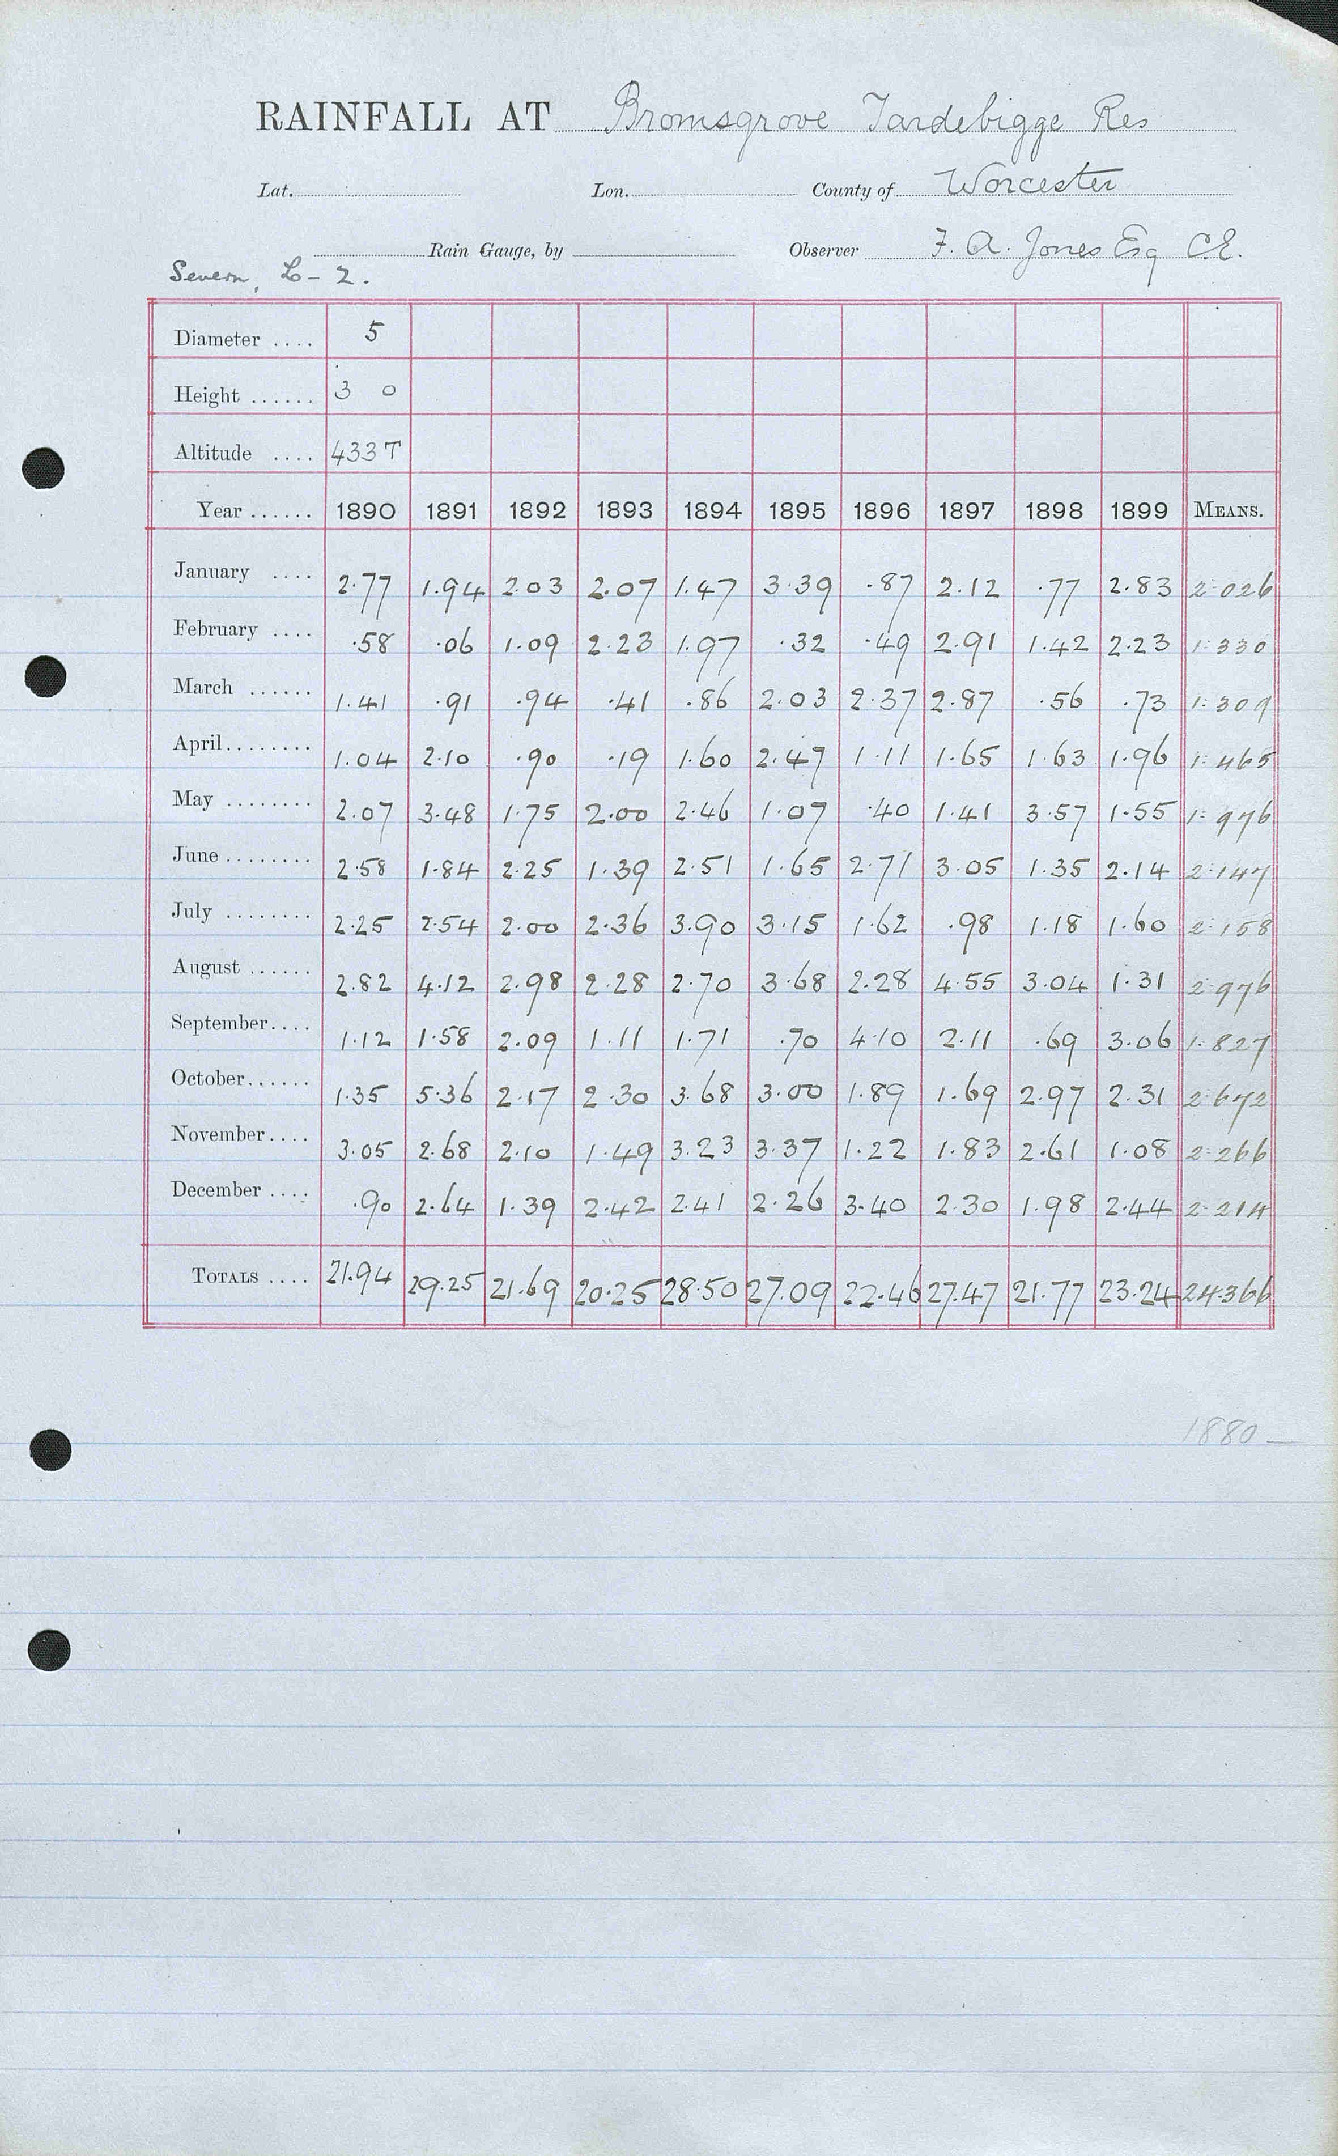 RAINFALL AT Bromsgrove Tardebigge Res
Lat. Lon. County of Worcester
Rain Gauge, by Observer F. A. Jones Esq C.E.
Severn, L-2.
Diameter .... 5
Height ...... 3 0
Altitude .... 433 T
Year ...... 1890 1891 1892 1893 1894 1895 1896 1897 1898 1899 MEANS.
January .... 2.77 1.94 2.03 2.07 1.47 3.39 .87 2.12 .77 2.83 2.026
February .... .58 .06 1.09 2.23 1.97 .32 .49 2.91 1.42 2.23 1.330
March ...... 1.41 .91 .94 .41 .86 2.03 2.37 2.87 .56 .73 1.309
April........ 1.04 2.10 .90 .19 1.60 2.47 1.11 1.65 1.63 1.96 1.465
May ........ 2.07 3.48 1.75 2.00 2.46 1.07 .40 1.41 3.57 1.55 1.976
June........ 2.58 1.84 2.25 1.39 2.51 1.65 2.71 3.05 1.35 2.14 2.147
July ........ 2.25 2.54 2.00 2.36 3.90 3.15 1.62 .98 1.18 1.60 2.158
August ...... 2.82 4.12 2.98 2.28 2.70 3.68 2.28 4.55 3.04 1.31 2.976
September.... 1.12 1.58 2.09 1.11 1.71 .70 4.10 2.11 .69 3.06 1.827
October...... 1.35 5.36 2.17 2.30 3.68 3.00 1.89 1.69 2.97 2.31 2.672
November.... 3.05 2.68 2.10 1.49 3.23 3.37 1.22 1.83 2.61 1.08 2.266
December .... .90 2.64 1.39 2.42 2.41 2.26 3.40 2.30 1.98 2.44 2.214
TOTALS .... 21.94 29.25 21.69 20.25 28.50 27.09 22.46 27.47 21.77 23.24 24.366
1880 —